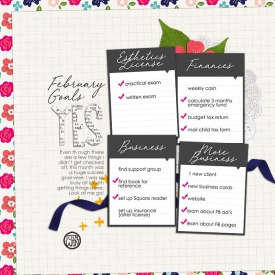 February
Goals
YES
Even though there
are a few things I
didn't get checked
off, this month was
a huge success
goal-wise. I was so
busy all month
getting things done.
Look at me go!
Esthetics
License
practical exam
written exam
Finances
weekly cash
calculate 3 months
emergency fund
budget tax return
mail child tax form
Business
find support group
find book for
reference
set up Square reader
set up insurance
(after license)
More
Business
1 new client
new business cards
website
learn about FB ad's
learn about FB pages